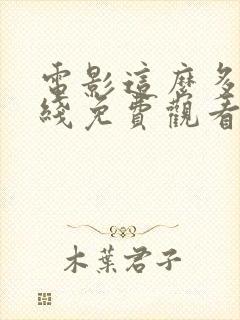 電影這麼多
綫免費觀看
木葉君子